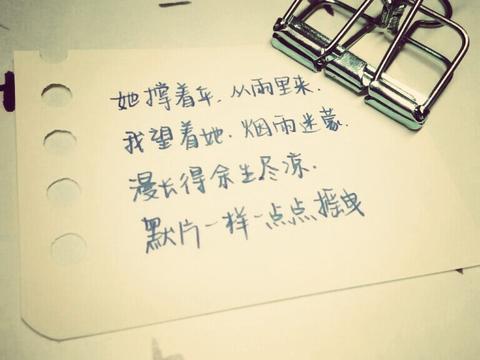 她撑着车.从雨里来.
我望着她.烟雨迷蒙.
漫长得余生尽凉.
默片一样一点点摇曳